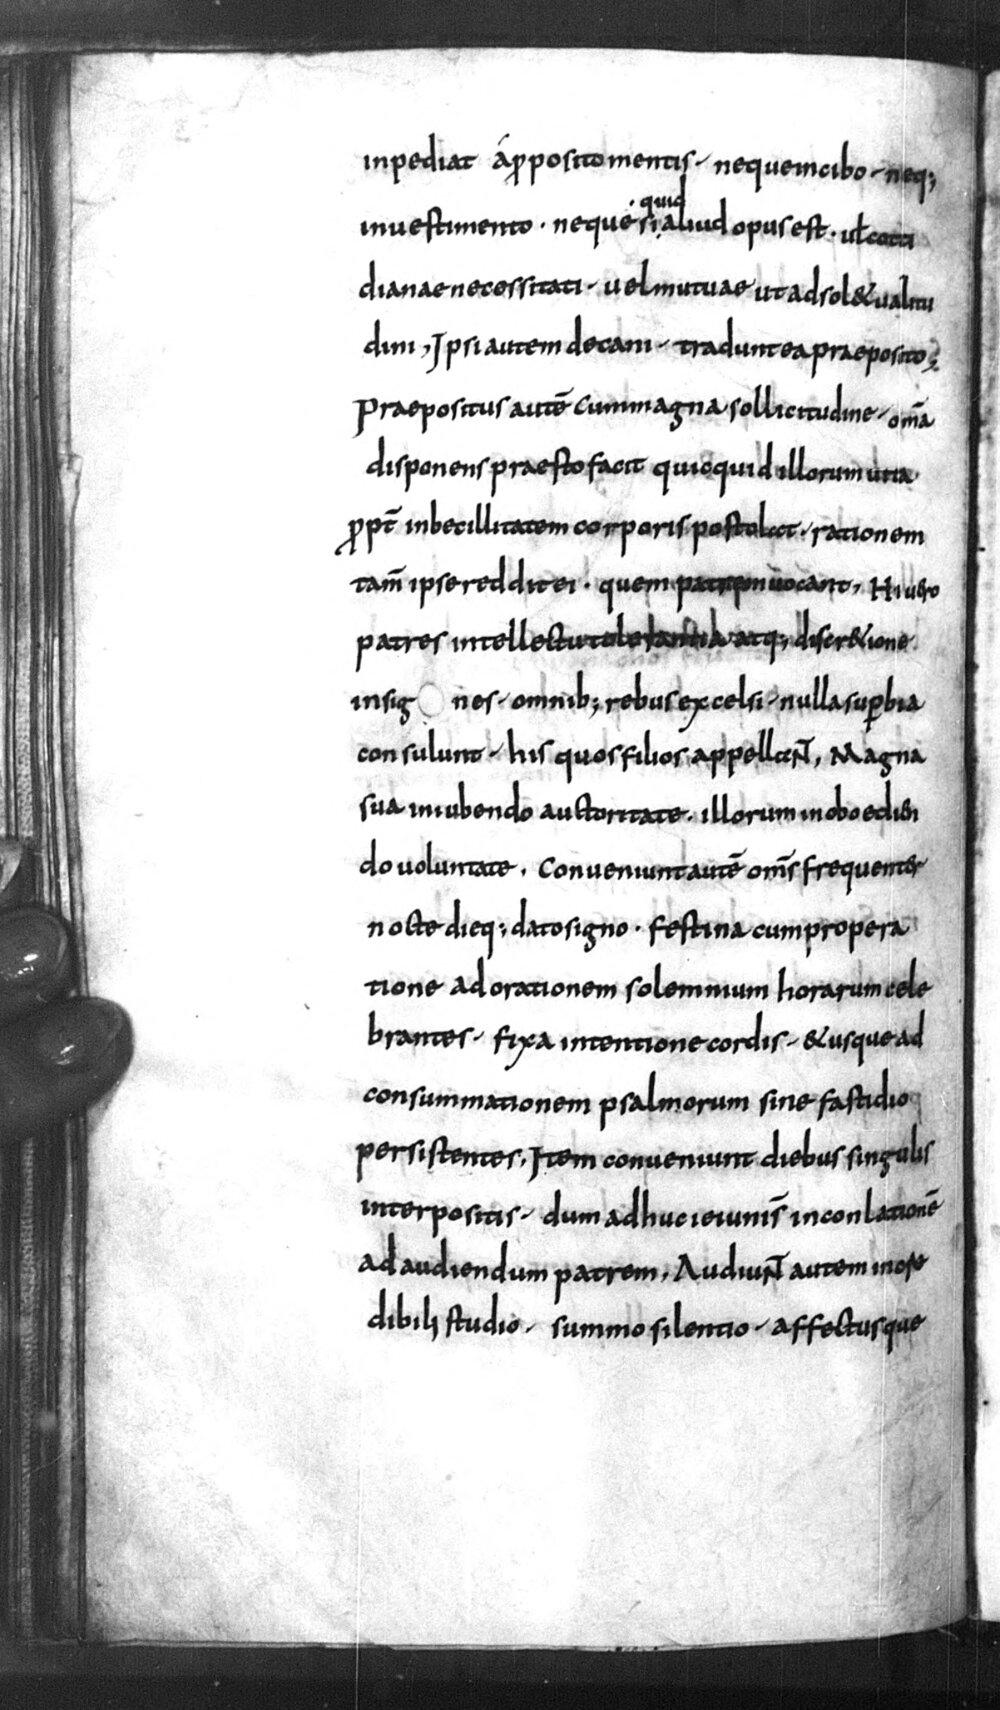 inpediat áꝓpositomentis · nequeincibo · neq;
inuestimento · neque si ·quid aliud opus est · ul̄ coti
dianaenecessitati · uelmutuae ut adsol&ualitu
dini, Ipsi autem decani · traduntea praeposito;
Praepositus autē cummagna sollicitudine · om̄a
disponens praestofacit quicquid illorum uita
ꝓpt̄ inbecillitatem corporis postolat · rationem
tam̄ ipse reddit ei · quem patrem uocant, Hi uero
patres intellectu tolerantia atq; discr&ione
insig nes · omnib; rebus excelsi · nulla suꝑbia
consulunt · his quos filios appellaNT̄, Magna
sua iniubendo auctoritate · illorum inoboedien
do uoluntate · Conueniunt autē om̄s frequenter
nocte dieq; dato signo · festina cum propera
tione ad orationem solemnium horarum cele
brantes · fixa intentione cordis · &usque ad
consummationem psalmorum sine fastidio
persistentes, Item conueniunt diebus singulis
interpositis · dum adhuc ieiunis̄ inconlationē
ad audiendum patrem, AudiuNT̄ autem incre
dibili studio · summo silentio · affectusque